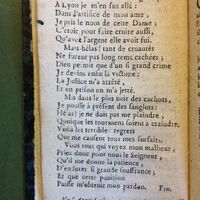 A Lyon je m'en fus allé:
Dans l'artifice de mon ame,
Je pris le nom de cette Dame;
C'étoit pour faire croire aussi,
Qu'avec l'argent elle avoit fui.
Mais hélas! tant de cruautés
Ne furent pas long tems cachées;
Dieu permit que d'un si grand crime
Je devins enfin la victime:
La Justice m'a arrêté,
Et en prison on m'a jetté.
Mais dans le plus noir des cachots,
Je pousse à présent des sanglots:
Hé quoi! je ne dois pas me plaindre,
Quoique les tourmens soient à craindre,
Voilà les terribles regrets
Que me causent tous mes forfaits.
Vous tous qui voyez mon malheur;
Priez donc pour moi le Seigneur,
Qu'il me donne la patience
D'endurer si grande souffrance;
Et que cette punition
Puisse m'obtenir mon pardon. FIN.